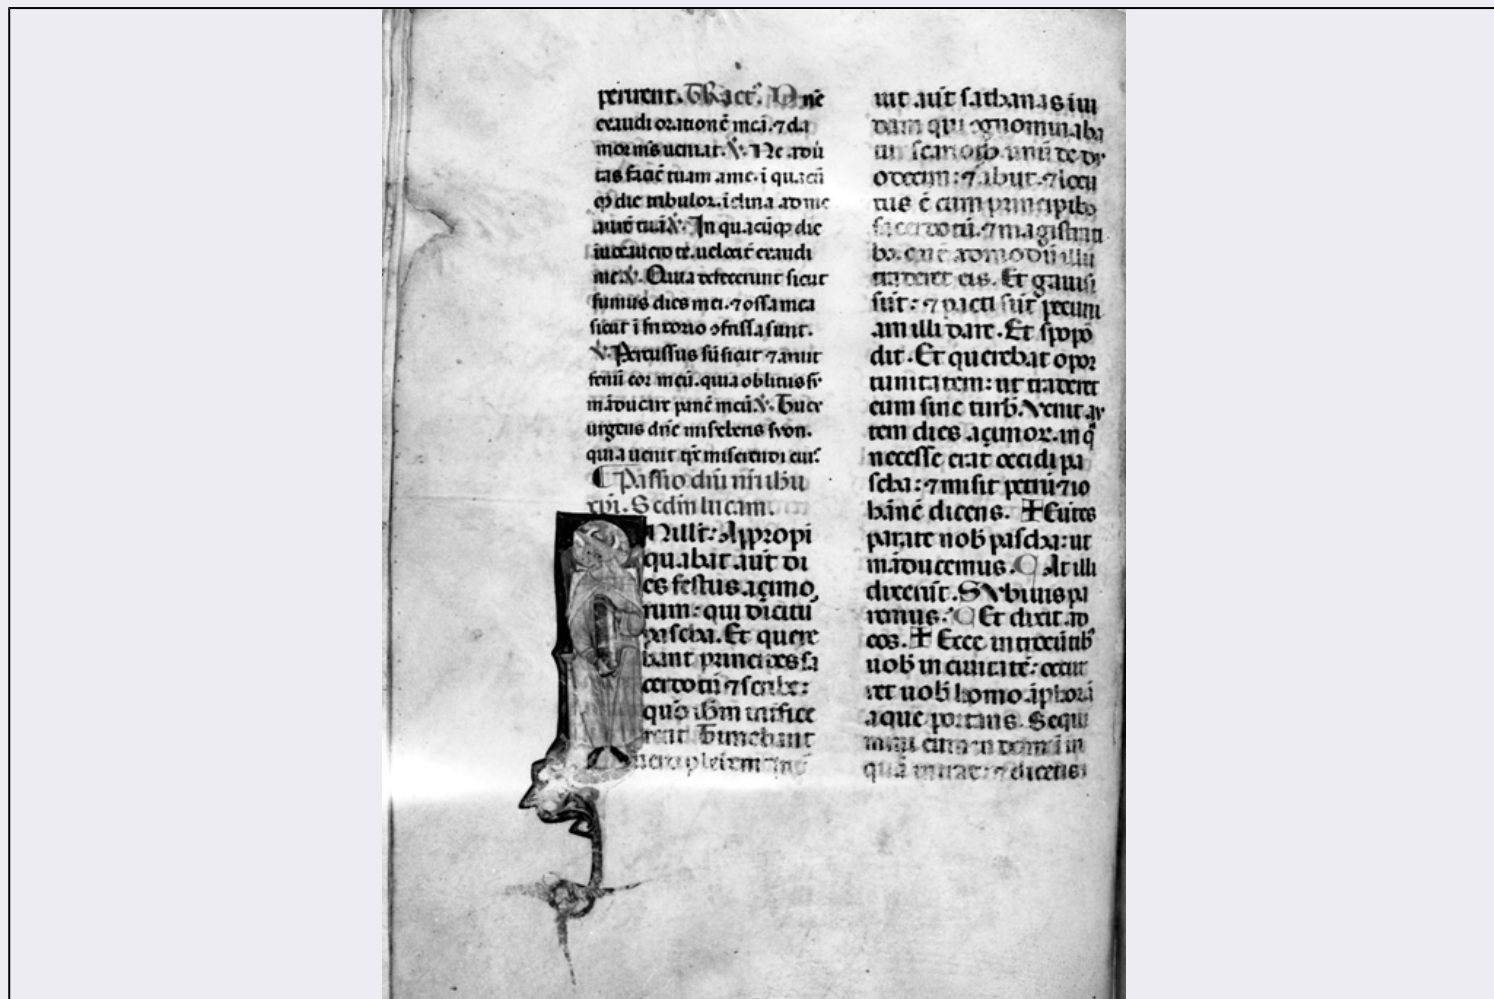 peruent. Tract. Dne
exaudi orationē meā. ⁊ da
mor m̄s ueniat. ℣. Ne auū
tas faciē tuam a me. ī quacū
q̨ die tribulor. īclina ad me
aurē tuā ℣. In quacūq̨ die
inuocauero te. uelocit̄ exaudi
me. ℣. Quia defecerunt sicut
fumus dies mei. ⁊ ossa mea
sicut ī frixorio ꝯfrissa sunt.
℣. Percussus sū sicut ⁊ aruit
fenū cor meū. quia oblitus sū
māducare panē meū. ℣. Tu ex
urgens dn̄e misebens syon.
quia uenit tp̄r miserendi eiuˢ.
Passio dn̄i nr̄i ihu
xp̄i. Scdm lucam.
N illt: Appropi
quabat aut di
es festus açimo
rum: qui dicitū
pascha. Et quere
bant principes sa
cerdotū ⁊ scribe:
quō ihm̄ intifice
rent. Timebant
uero plebem.
uit aut̄ sathanas in iu
dam qui ꝯgnominaba
ur scarioth unū de du
odecim: ⁊ abiit. ⁊ locu
tus ē cum principibꝫ
sacerdotū. ⁊ magistrati
bꝫ. quē admodū illū
traderet eis. Et gauisi
sūt: ⁊ pacti sūt pecuni
am illi dare. Et spopō
dit. Et querebat opor
tunitatem: ut traderet
eum sine turb̄. Venit au
tem dies açimoꝝ. in q̄
necesse erat occidi pa
scha: ⁊ misit petrū ⁊ io
hānē dicens. ✝ Euntes
parate nob̄ pascha: ut
māducemus. At illi
dixerūt. S Vbi uis pa
remus. Et dixit ad
eos. ✝ Ecce introeūtib̄
uob̄ in ciuitatē: occur
ret uob̄ homo āphorā
aque portans. Sequi
mini eum in domū in
quā intrat: ⁊ dicetis